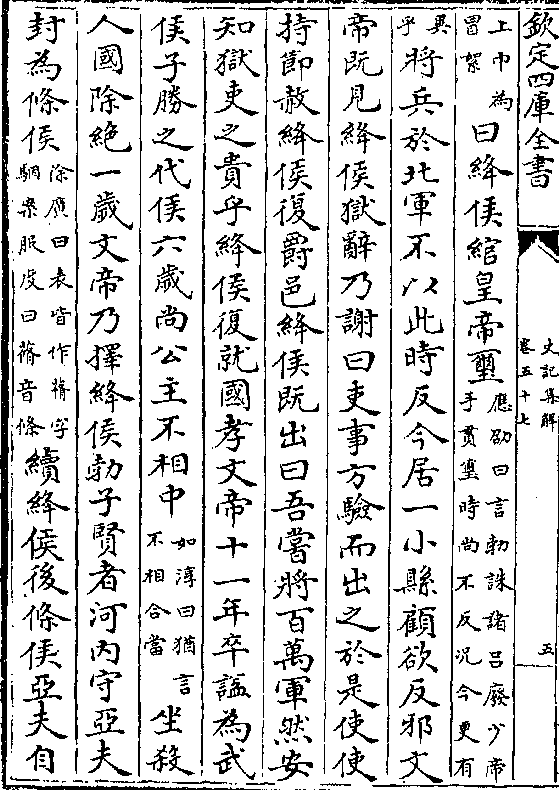 欽定四庫全書
史記集解
卷五十七
五
上巾為
冒絮
曰絳侯綰皇帝璽
應劭曰言勃誅諸呂廢少帝
手貫璽時尚不反況今更有
異
乎
將兵於北軍不以此時反今居一小縣顧欲反邪文
帝既見絳侯獄辭乃謝曰吏事方驗而出之於是使使
持節赦絳侯復爵邑絳侯既出曰吾嘗將百萬軍然安
知獄吏之貴乎絳侯復就國孝文帝十一年卒諡為武
侯子勝之代侯六歲尚公主不相中
如淳曰猶言
不相合當
坐殺
人國除絕一歲文帝乃擇絳侯勃子賢者河內守亞夫
封為條侯
徐廣曰表皆作蓨字
駰案服虔曰蓨音條
續絳侯後條侯亞夫自